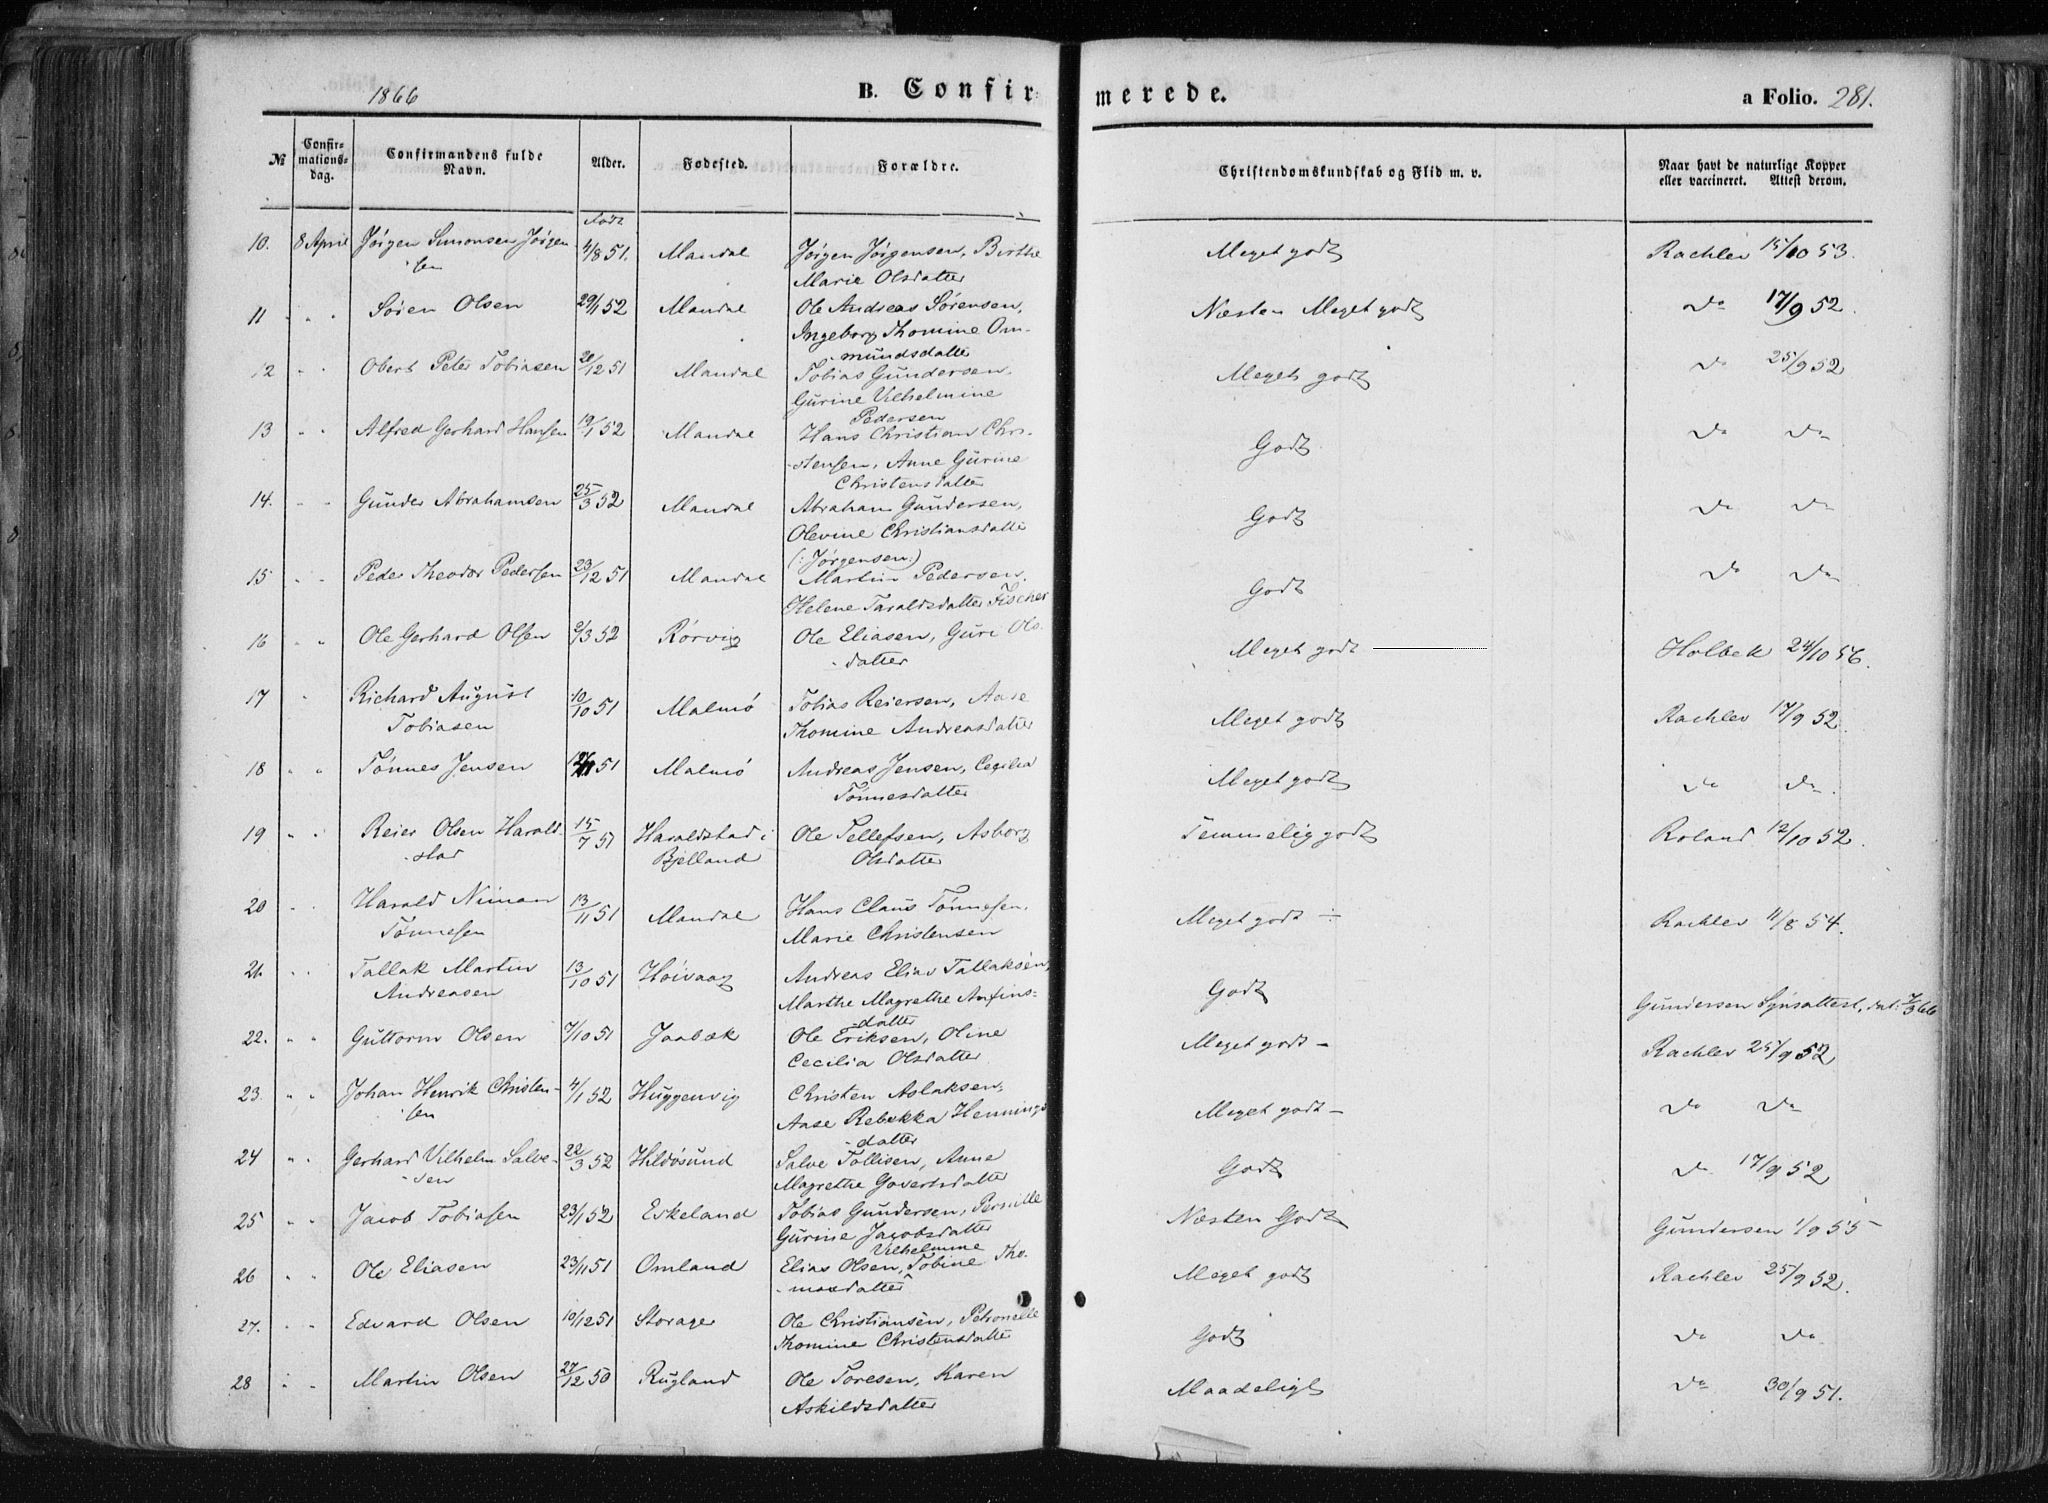 1866 B. Confirmerede. a Folio. 281.
№ Confirmationsdag. Confirmandens fulde Navn. Alder. Fødested. Forældre. Christendomskundskab og Flid m. v. Naar havt de naturlige Kopper eller vaccineret. Attest derom.
født
10. 8 April Jørgen Simonsen Jørgen- 4/8 51. Mandal Jørgen Jørgensen, Birthe Meget godt Rachlev 15/10 53.
sen Marie Olsdatter
11 " " Søren Olsen 29/1 52 Mandal Ole Andreas Sørensen, Næsten Meget godt do 17/9 52.
Ingeborg Thomine Om-
mundsdatter
12 " " Obert Peter Tobiasen 20/12 51 Mandal Tobias Gundersen, Meget godt do 25/9 52
Gurine Vilhelmine
Pedersen
13 " " Alfred Gerhard Hansen 19/1 52 Mandal Hans Christian Chri- Godt do do
stensen, Anne Gurine
Christensdatter
14. " " Gunder Abrahamsen 25/3 52 Mandal Abraham Gundersen, Godt do do
Olevine Christiansdatter
(: Jørgensen:)
15 " " Peder Theodor Pedersen 23/12 51 Mandal Martin Pedersen, Godt do do
Helene Taraldsdatter Fischer
16 " " Ole Gerhard Olsen 2/3 52 Rørvig Ole Eliasen, Guri Ols- Meget godt Holbek 24/10 56.
datter
17 " Richard August 10/10 51 Malmø Tobias Reiersen, Aase Meget godt Rachlev 17/9 52.
Tobiasen Thomine Andreasdatter
18 " " Tønnes Jensen 51 Malmø Andreas Jensen, Cecilia Meget godt do do.
Tønnesdatter
19 " " Reier Olsen Harald- 15/7 51 Haraldstad i Ole Tellefsen, Asborg Temmelig godt Roland 12/10 52.
stad Bjelland Olsdatter
20 " " Harald Niman 13/11 51 Mandal Hans Claus Tønnesen, Meget godt ÷ Rachlev 11/8 54.
Tønnesen Marie Christensen
21. " " Tallak Martin 13/10 51 Høivaag Andreas Elias Tallaksen, Godt Gundersen Synsattest, dat: 7/3 66
Andreasen Marthe Magrethe Anfins-
datter
22. " " Guttorm Olsen 7/10 51 Jaabæk Ole Eriksen, Oline Meget godt - Rachlev 25/9 52
Cecilia Olsdatter
23. " " Johan Henrik Christen- 4/1 52 Huggenvig Christen Aslaksen, Meget godt - do do
sen Aase Rebekka Hennings-
datter
24 " " Gerhard Vilhelm Salve- 22/3 52 Hildøsund Salve Tollisen, Anne Godt do 17/9 52
sen Magrethe Govertsdatter
25 " " Jacob Tobiasen 23/1 52 Eskeland Tobias Gundersen, Pernille Næsten Godt Gundersen 1/9 55
Gurine Jacobsdatter
Vilhelmine
26 " " Ole Eliasen 23/11 51 Omland Elias Olsen, Tobine Tho- Meget godt Rachlev 25/9 52.
masdatter
27. " " Edvard Olsen 10/12 51 Storager Ole Christiansen, Petronelle Godt do do
Thomine Christensdatter
28 " " Martin Olsen 27/12 50 Rugland Ole Toresen, Karen Maadeligt do 30/9 51.
Askildsdatter